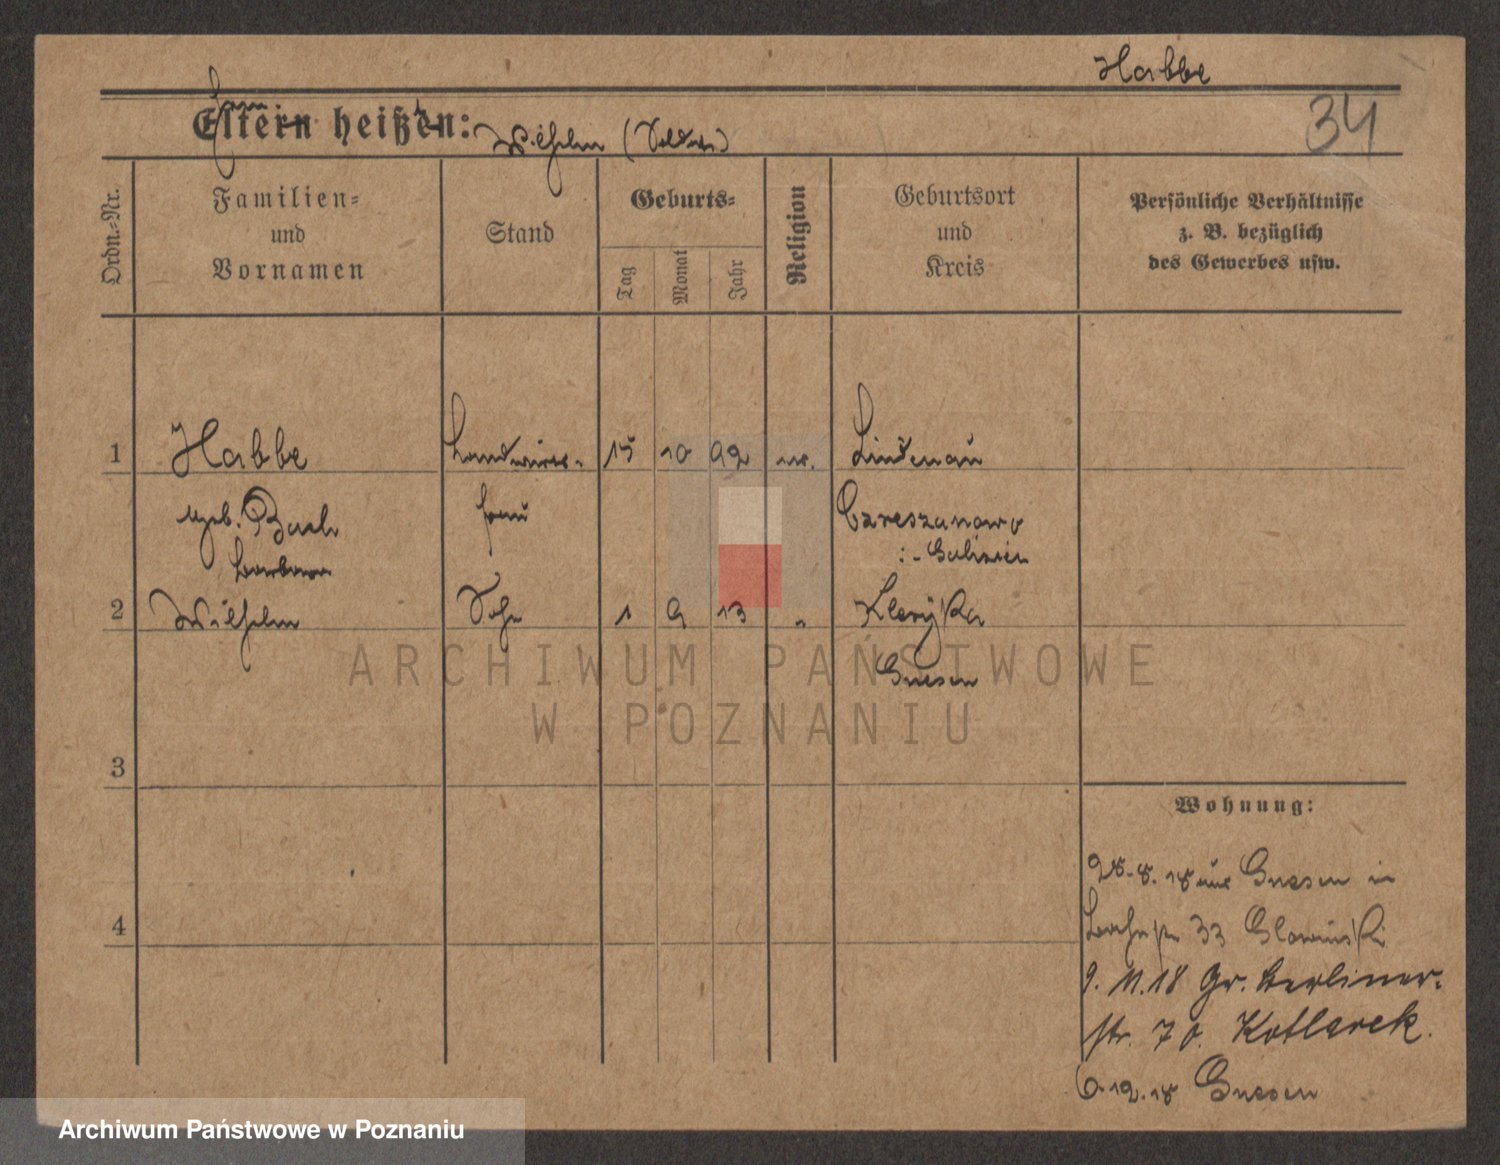 Habbe
34
Eltern heißen: Wilhelm (Soldat)
Ordn.-Nr.
Familien-
und
Vornamen
Stand
Geburts-
Tag
Monat
Jahr
Religion
Geburtsort
und
Kreis
Persönliche Verhältnisse
z. B. bezüglich
des Gewerbes usw.
1 Habbe Landwirts- 15 10 92 Lindenau
geb. Bach frau
Barbara Galizien
2 Wilhelm Sohn 1 9 13 "
Gnesen
3
4
Wohnung:
28.8.18 aus Gnesen in
33
9.11.18 Gr. Berliner-
str. 70. Kotlarek.
6.12.18 Gnesen
ARCHIWUM PAŃSTWOWE
W POZNANIU
Archiwum Państwowe w Poznaniu